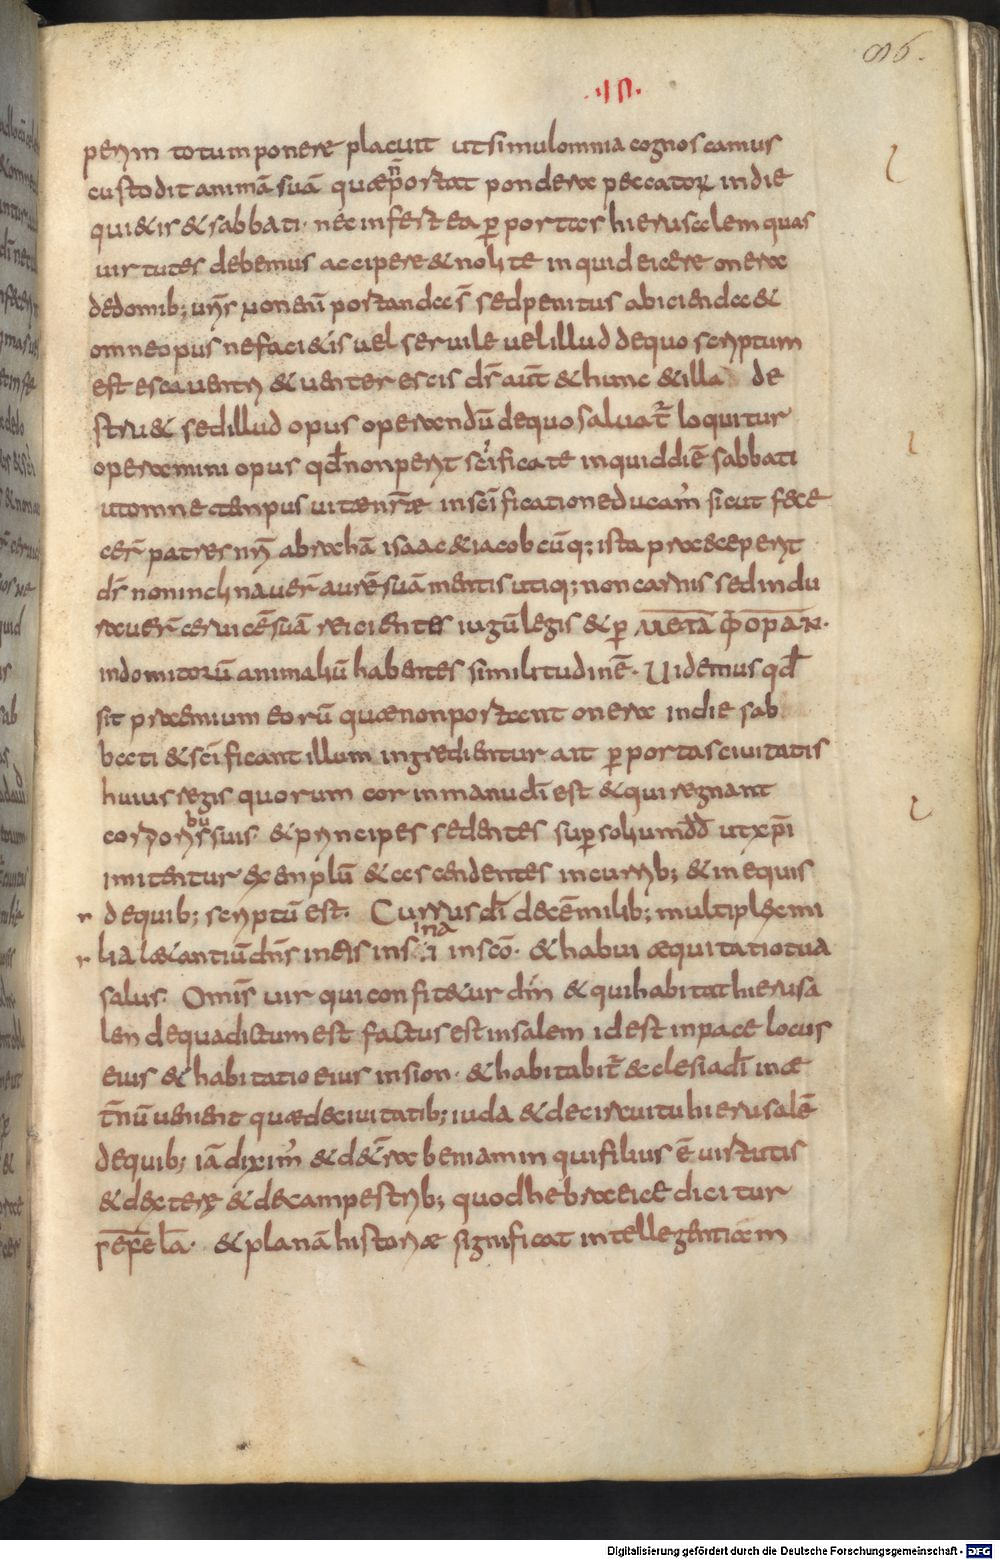 96.
perim totum ponere placuit ut simul omnia cognoscamus
custodit animā suā quae n̄ portat pondera peccatoꝝ in die
qui&is & sabbati · nec infert ea ꝑ portas hierusalem quas
uirtutes debemus accipere & nolite inquid eicere onera
de domib; ur̄is non enī portanda s̄ sed penitus abicienda &
omne opus ne faci&is uel seruile uel illud de quo scriptum
est esca uentri & uenter escis dr̄ aūt & hunc & illa de
stru& sed illud opus operandū de quo saluat̄ loquitur
operamini opus qd̄ non perit sc̄ificate inquid diē sabbati
ut omne tempus uitae nr̄ae in sc̄ificatione ducam' sicut fece
cer̄ patres nr̄i abrahā isaac & iacob cūq; ista praeceperit
dr̄ non inclinauer̄ aurē suā mentis utiq; non carnis sed indu
rauer̄ ceruicē suā reicientes iugū legis & ꝑ ΜΕΤΑΦΟΡΑΝ·
indomitorū animaliū habentes similitudinē · Uidemus qd̄
sit praemium eorū quae non portant onera in die sab
bati & sc̄ificant illum ingredientur ait ꝑ portas ciuitatis
huius regis quorum cor in manu dī est & qui regnant
bu
corporis suis · & principes sedentes suꝑ solium dd̄ ut xp̄i
imitentur exemplū & ascendentes in currib; & in equis
r de quib; scriptū est · Currus dī decē milib; multiplex mi
ina
r lia l&antiū dn̄s in eis in s i in scō · & habui aequitatio tua
salus · Omīs uir qui confit&ur dn̄i & qui habitat hierusa
lem de qua dictum est factus est in salem id est in pace locus
eius & habitatio eius in sion · & habitabit̄ &clesia dī in ae
t̄nū uenient quae de ciuitatib; iuda & de circuitu hierusalē
de quib; iā dixim' & de t̄ra beniamin qui filius ē uirtutis
& dexterę & de campestrib; quod hebraeice dicitur
sefela · & planā historiae significat intellegentiam
Digitalisierung gefördert durch die Deutsche Forschungsgemeinschaft - DFG